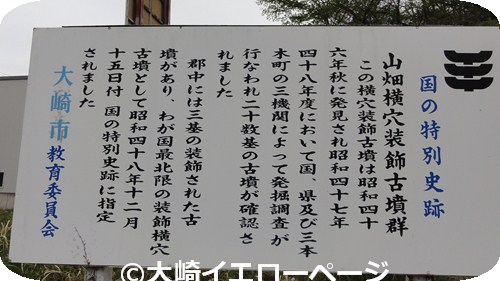 国の特別史跡
山畑横穴装飾古墳群
この横穴装飾古墳は昭和四十
六年秋に発見され昭和四十七年
四十八年度において国、県及び三本
木町の三機関によって発掘調査が
行なわれ二十数基の古墳が確認さ
れました
郡中には三基の装飾された古
墳があり、わが国最北限の装飾横穴
古墳として昭和四十八年十二月
十五日付 国の特別史跡に指定
されました
大崎市教育委員会
©大崎イエローページ